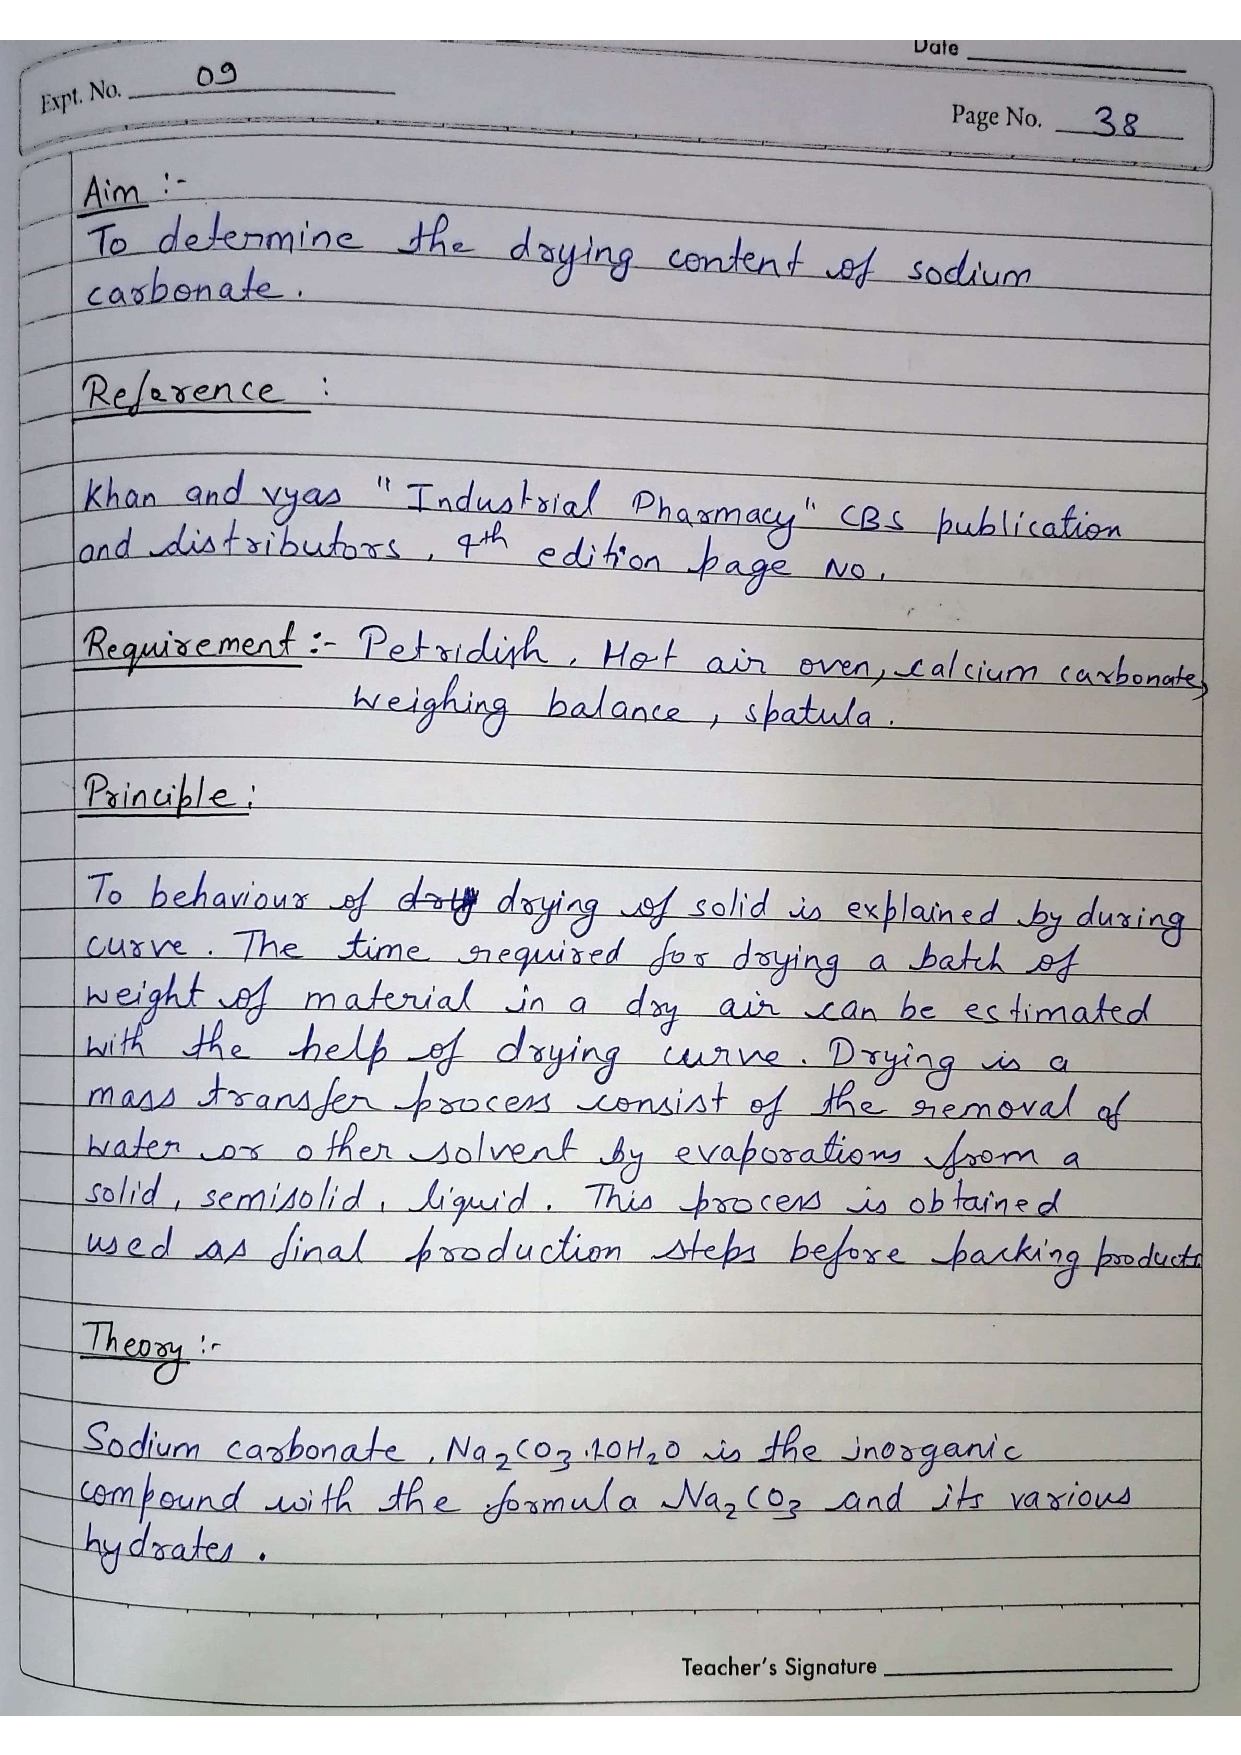 Date
Expt. No. 09
Page No. 38
Aim :-
To determine the drying content of sodium
carbonate.
Reference :
Khan and vyas "Industrial Pharmacy" CBS publication
and distributors, 4th edition page No.
Requirement :- Petridish, Hot air oven, calcium carbonate,
weighing balance, spatula.
Principle :
To behaviour of drying of solid is explained by during
curve. The time required for drying a batch of
weight of material in a dry air can be estimated
with the help of drying curve. Drying is a
mass transfer process consist of the removal of
water or other solvent by evaporations from a
solid, semisolid, liquid. This process is obtained
used as final production steps before packing products
Theory :-
Sodium carbonate, Na₂CO₃.10H₂O is the inorganic
compound with the formula Na₂CO₃ and its various
hydrates.
Teacher's Signature